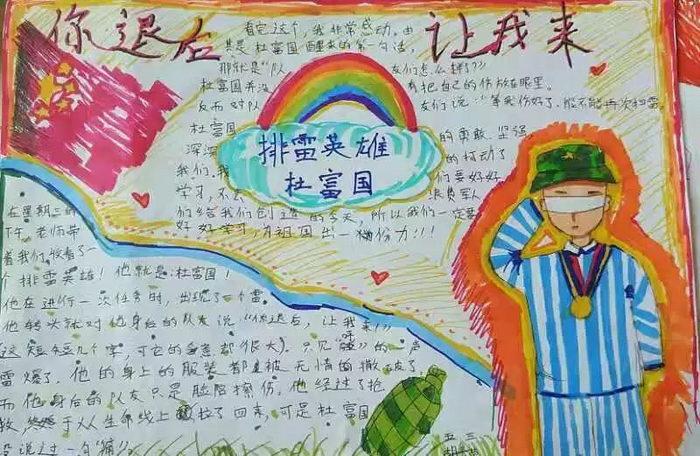 你退后
让我来
看完这个,我非常感动。由
其是杜富国醒来的第一句话,
那就是“队友们怎么样?”
杜富国并没有把自己的伤放在眼里。
反而对队友们说“等我伤好了,能不能再次扫雷。
杜富国的勇敢、坚强
深深的打动了
我们,我们要好好
学习,不浪费军人
们给我们创造的今天,所以我们一定要
好好学习,为祖国出一份力!!!
排雷英雄
杜富国
在星期三的
下午,老师带
着我们收看了一
个排雷英雄!他就是:杜富国!
他在进行一次任务时,出现了一个雷。
他转头就对他身后的队友说“你退后,让我来!”
(这短短几个字,可它的意思都很大)。只见“嘭”的一声
雷爆了,他的身上的服装都被无情的撕破了,
而他身后的队友只是脸陪擦伤,他经过了抢
救终于从生命线上拉了回来,可是杜富国
没说过一句“痛”。
五三